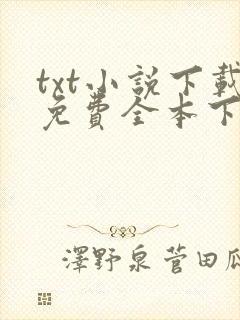 txt小説下載
免費全本下
澤野泉菅田瓜